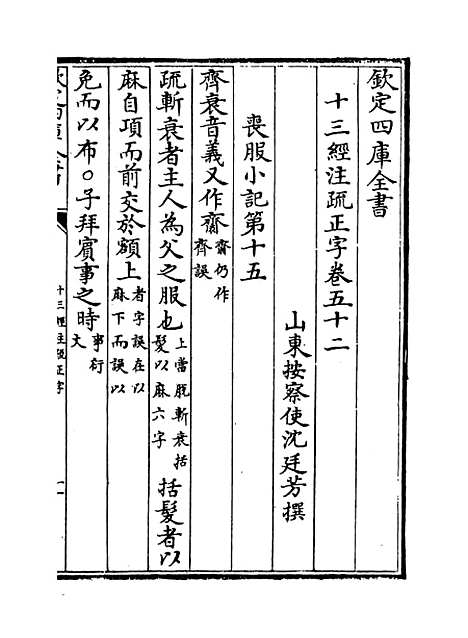 欽定四庫全書
十三經注疏正字卷五十二
山東按察使沈廷芳撰
喪服小記第十五
齊衰音義又作齋齋仍作齊誤
疏斬衰者主人為父之服也上當脫斬衰括髮以麻六字括髮者以
麻自項而前交於額上者字誤在以麻下而誤以
免而以布○子拜賓事之時事衍文
十三經注疏正字